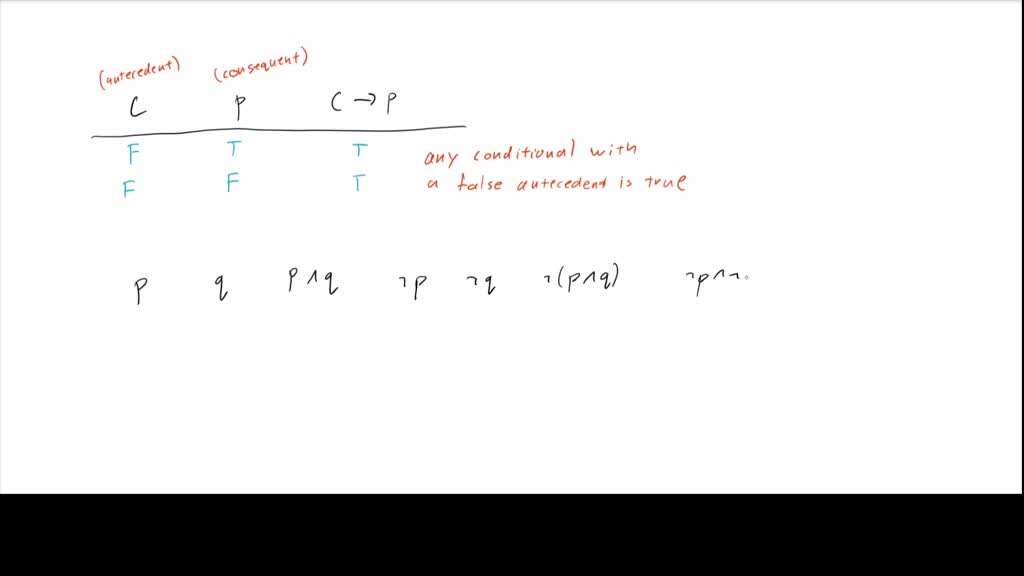 (antecedent) (consequent)
C P C → P
F T T any conditional with
F F T a false antecedent is true
p q p ∧ q ¬p ¬q ¬(p∧q) ¬p∧¬